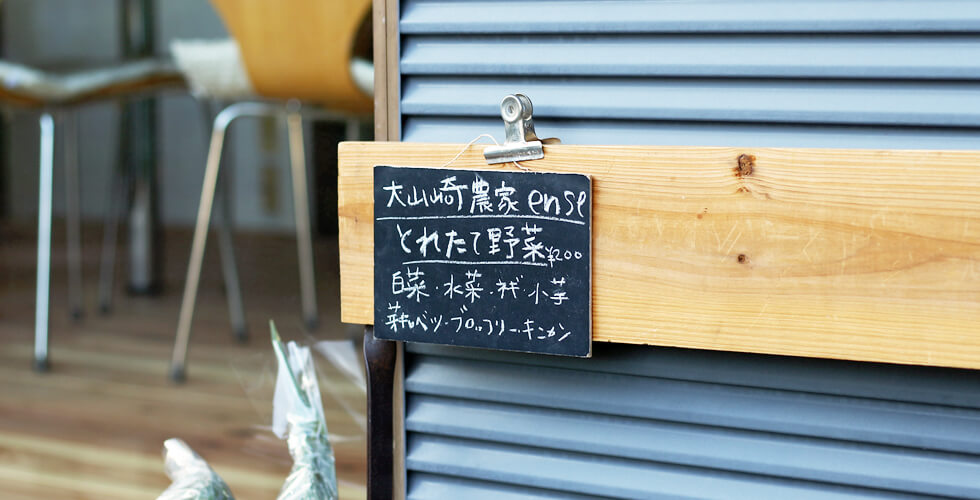 大山崎農家 ense
とれたて野菜 ¥200
白菜・水菜・ネギ・小芋
芽キャベツ・ブロッコリー・キンカン